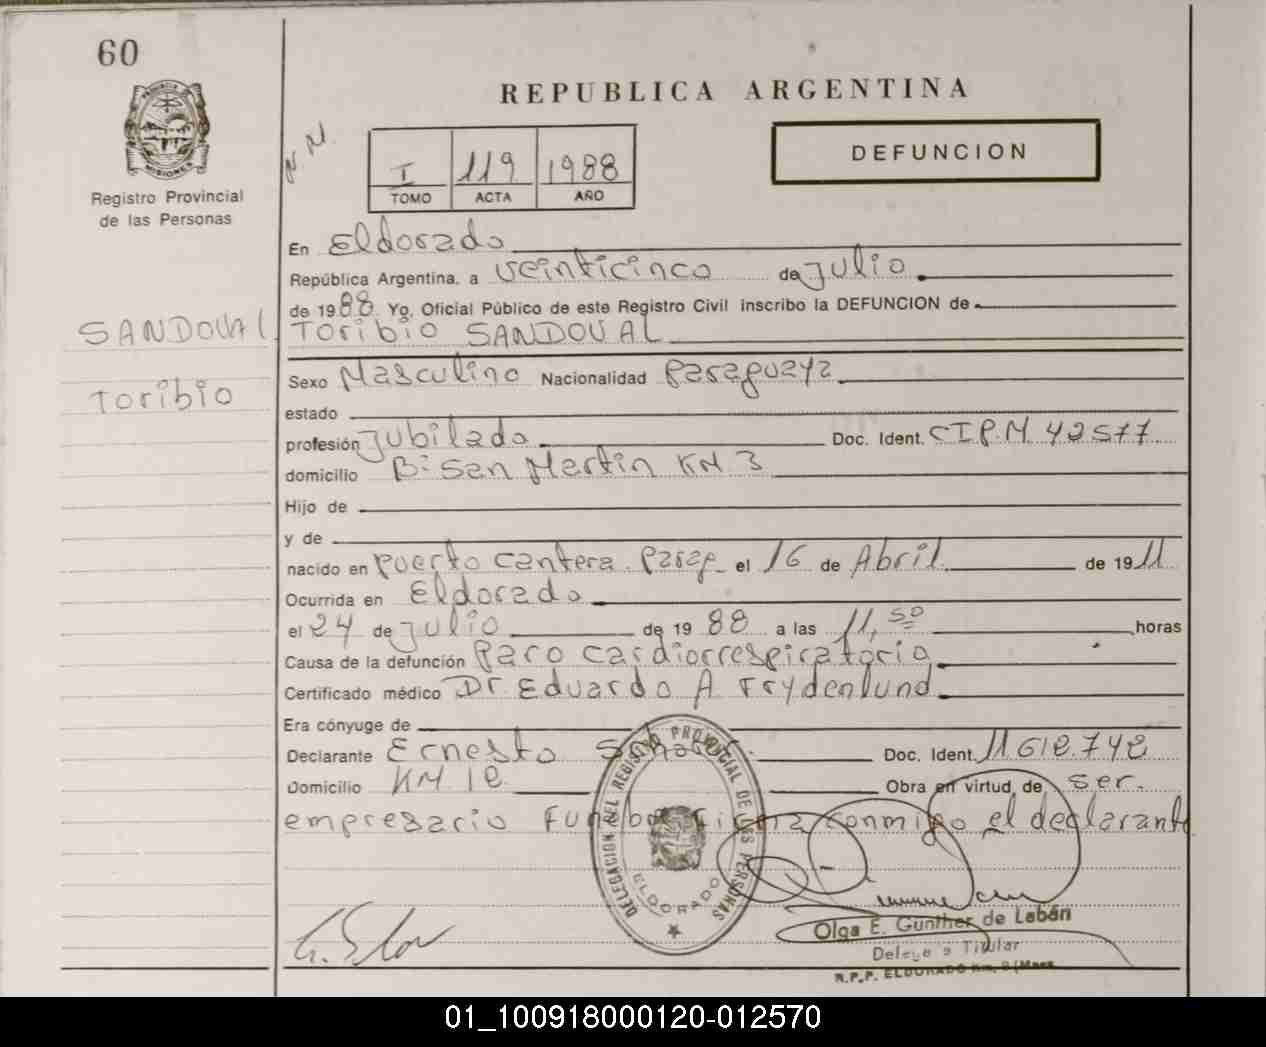 60
REPUBLICA ARGENTINA
MISIONES
Registro Provincial
de las Personas
I 119 1988
TOMO ACTA AÑO
DEFUNCION
En Eldorado
República Argentina, a veinticinco de Julio
de 1988 Yo, Oficial Público de este Registro Civil inscribo la DEFUNCION de
SANDOVAL Toribio SANDOVAL
Toribio
Sexo Masculino Nacionalidad Paraguaya
estado
profesión Jubilado Doc. Ident. CIP.M 42577
domicilio Bº San Martin KM 3
Hijo de
y de
nacido en Puerto cantera Parag el 16 de Abril de 1911
Ocurrida en Eldorado
el 24 de Julio de 1988 a las 11,50 horas
Causa de la defunción Paro cardiorrespiratorio
Certificado médico Dr Eduardo A Frydenlund
Era cónyuge de
Declarante Ernesto Doc. Ident. 11.612.742
Domicilio KM 10 Obra en virtud de ser.
empresario Funebre Firma conmigo el declarante
DELEGACION DEL REGISTRO PROVINCIAL DE LAS PERSONAS
ELDORADO
Olga E. Gunther de Labán
Delegada Titular
R.P.P. ELDORADO Km. 9 (Mnes
01_100918000120-012570